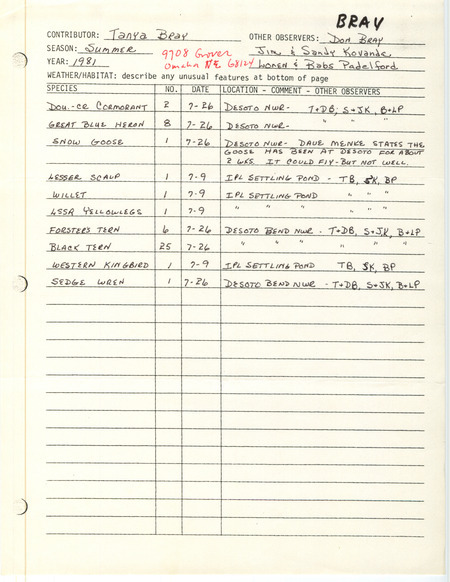 BRAY
CONTRIBUTOR: Tanya Bray OTHER OBSERVERS: Don Bray
SEASON: Summer 9708 Grover Jim & Sandy Kovanda
YEAR: 1981 Omaha NE 68124 Loren & Babs Padelford
WEATHER/HABITAT: describe any unusual features at bottom of page
SPECIES NO. DATE LOCATION - COMMENT - OTHER OBSERVERS
Dou.-cr Cormorant 2 7-26 DeSoto NWR- T+DB, S+JK, B+LP
Great Blue Heron 8 7-26 DeSoto NWR- " " "
Snow Goose 1 7-26 DeSoto NWR- Dave Menke states the
goose has been at DeSoto for about
2 wks. It could fly-but not well.
Lesser Scaup 1 7-9 IPL Settling Pond - TB, SK, BP
Willet 1 7-9 IPL Settling Pond " " "
Lssr Yellowlegs 1 7-9 " " " " " "
Forster's Tern 6 7-26 DeSoto Bend NWR - T+DB, S+JK, B+LP
Black Tern 25 7-26 " " " " " "
Western Kingbird 1 7-9 IPL Settling Pond TB, SK, BP
Sedge Wren 1 7-26 DeSoto Bend NWR - T+DB, S+JK, B+LP